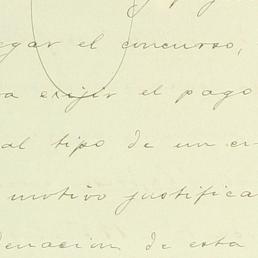 egar el concurso,
a exijir el pago
al tipo de un
motivo justifica
denacion de esta